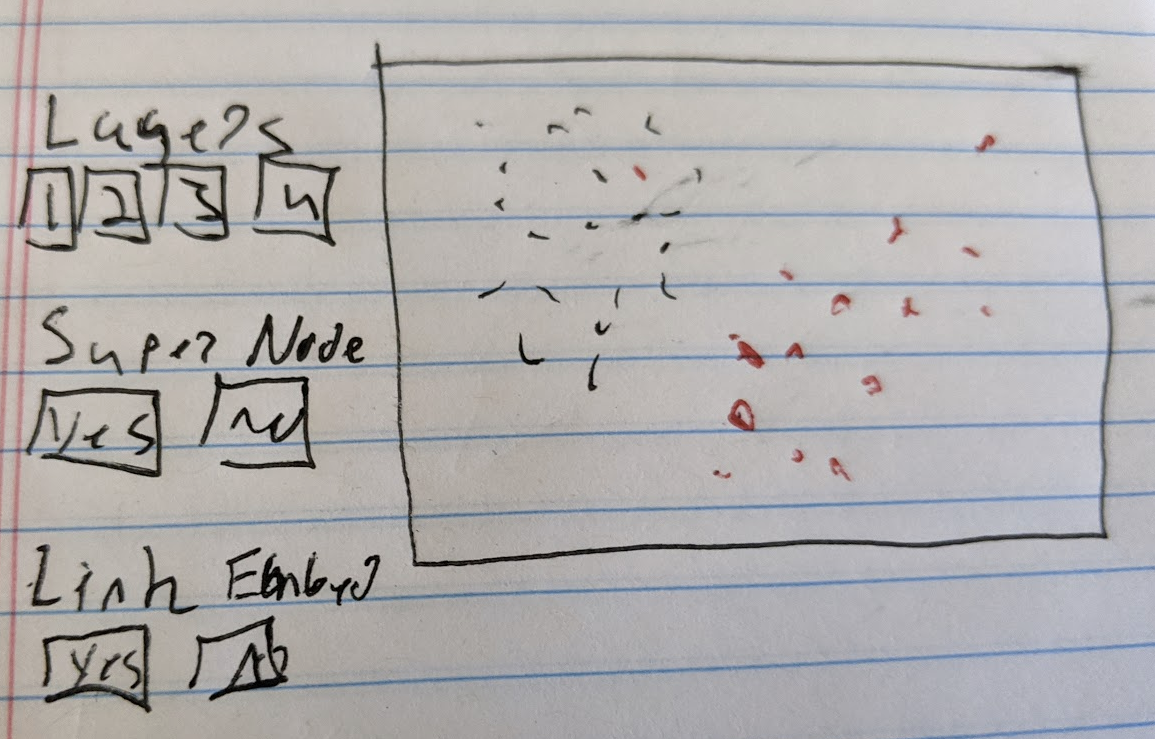 Layers
1 2 3 4
Super Node
Yes no
Link
Yes No